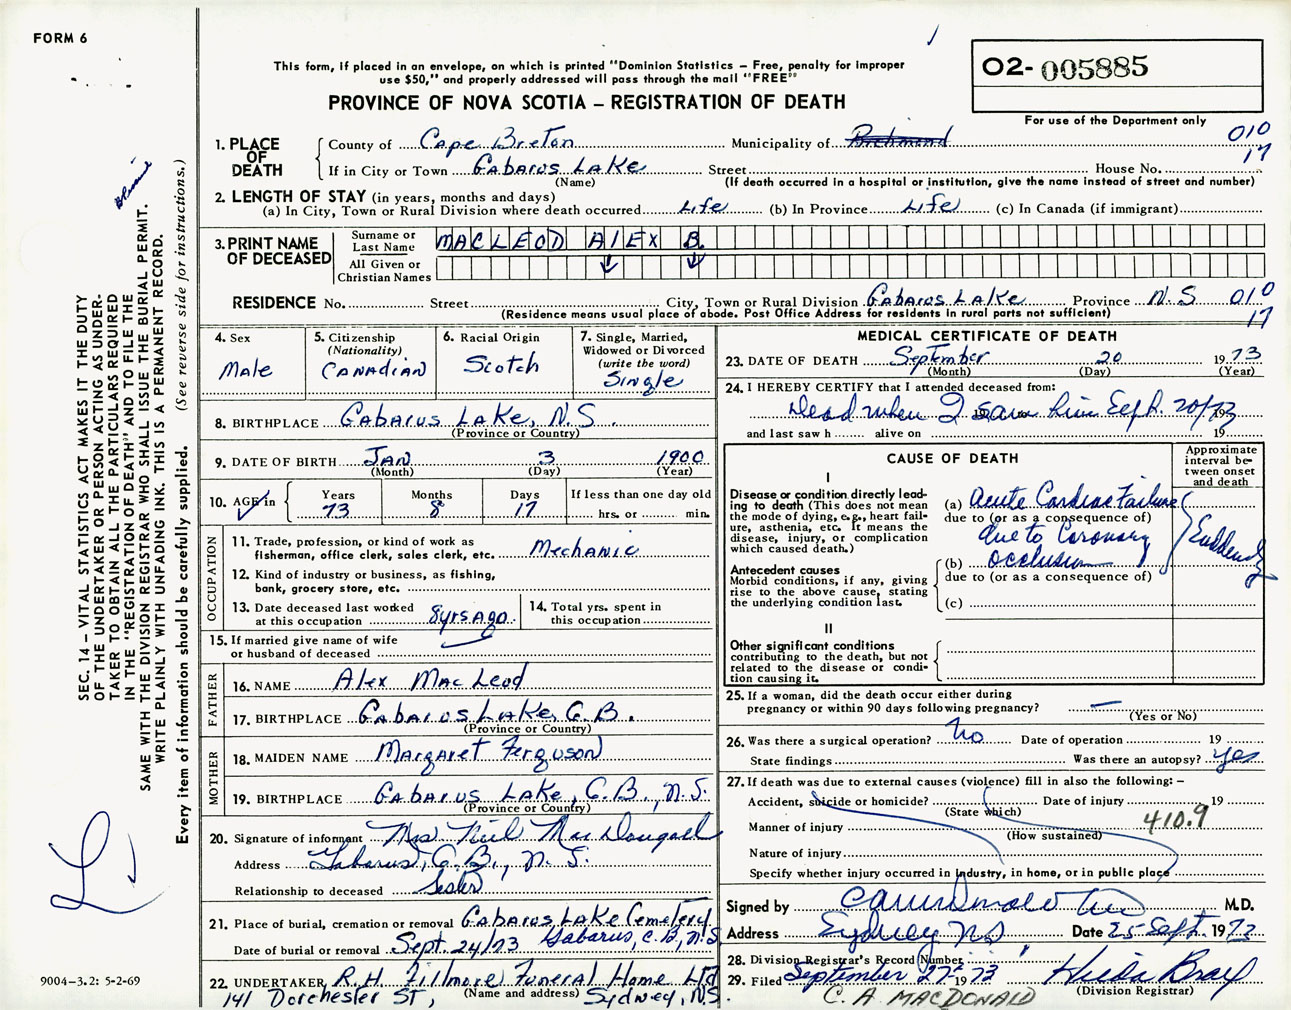 FORM 6
This form, if placed in an envelope, on which is printed "Dominion Statistics – Free, penalty for improper
use $50," and properly addressed will pass through the mail "FREE"
PROVINCE OF NOVA SCOTIA – REGISTRATION OF DEATH
O2- 005885
For use of the Department only
1. PLACE OF DEATH
County of Cape Breton Municipality of Richmond 010
If in City or Town Gabarus Lake Street House No. 17
(Name) (If death occurred in a hospital or institution, give the name instead of street and number)
2. LENGTH OF STAY (in years, months and days)
(a) In City, Town or Rural Division where death occurred Life (b) In Province Life (c) In Canada (if immigrant)
3. PRINT NAME OF DECEASED
Surname or Last Name MACLEOD ALEX B.
All Given or Christian Names
RESIDENCE No. Street City, Town or Rural Division Gabarus Lake Province N.S 010
(Residence means usual place of abode. Post Office Address for residents in rural parts not sufficient) 17
4. Sex Male
5. Citizenship (Nationality) Canadian
6. Racial Origin Scotch
7. Single, Married, Widowed or Divorced (write the word) Single
8. BIRTHPLACE Gabarus Lake, N.S.
(Province or Country)
9. DATE OF BIRTH Jan 3 1900
(Month) (Day) (Year)
10. AGE in Years 73 Months 8 Days 17 If less than one day old
hrs. or min.
OCCUPATION
11. Trade, profession, or kind of work as
fisherman, office clerk, sales clerk, etc. Mechanic
12. Kind of industry or business, as fishing,
bank, grocery store, etc.
13. Date deceased last worked
at this occupation 8yrs Ago
14. Total yrs. spent in
this occupation
15. If married give name of wife
or husband of deceased
FATHER
16. NAME Alex MacLeod
17. BIRTHPLACE Gabarus Lake, C.B.
(Province or Country)
MOTHER
18. MAIDEN NAME Margaret Ferguson
19. BIRTHPLACE Gabarus Lake, C.B., N.S.
(Province or Country)
20. Signature of informant Mrs Neil MacDougall
Address Gabarus, C.B., N.S.
Relationship to deceased Sister
21. Place of burial, cremation or removal Gabarus Lake Cemetery
Date of burial or removal Sept. 24/73 Gabarus, C.B., N.S.
22. UNDERTAKER R.H. Fillmore Funeral Home Ltd
141 Dorchester St, (Name and address) Sydney, N.S.
MEDICAL CERTIFICATE OF DEATH
23. DATE OF DEATH September 20 1973
(Month) (Day) (Year)
24. I HEREBY CERTIFY that I attended deceased from:
Dead when I saw him Sept. 20/73 19
and last saw h alive on 19
CAUSE OF DEATH
Approximate interval between onset and death
I
Disease or condition directly leading to death (This does not mean the mode of dying, e.g., heart failure, asthenia, etc. It means the disease, injury, or complication which caused death.)
(a) Acute Cardiac Failure
due to (or as a consequence of)
due to Coronary
(b) occlusion
due to (or as a consequence of)
(c)
Suddenly
Antecedent causes
Morbid conditions, if any, giving rise to the above cause, stating the underlying condition last.
II
Other significant conditions
contributing to the death, but not related to the disease or condition causing it.
25. If a woman, did the death occur either during
pregnancy or within 90 days following pregnancy? —
(Yes or No)
26. Was there a surgical operation? No Date of operation 19
State findings Was there an autopsy? Yes
27. If death was due to external causes (violence) fill in also the following: –
Accident, suicide or homicide? Date of injury 19
(State which)
Manner of injury 410.9
(How sustained)
Nature of injury
Specify whether injury occurred in industry, in home, or in public place
Signed by M.D.
Address Sydney NS Date 25 Sept. 1973
28. Division Registrar's Record Number
29. Filed September 27 1973 Hilda Bray
C. A. MACDONALD (Division Registrar)
SEC. 14 – VITAL STATISTICS ACT MAKES IT THE DUTY
OF THE UNDERTAKER OR PERSON ACTING AS UNDER-
TAKER TO OBTAIN ALL THE PARTICULARS REQUIRED
IN THE "REGISTRATION OF DEATH" AND TO FILE THE
SAME WITH THE DIVISION REGISTRAR WHO SHALL ISSUE THE BURIAL PERMIT.
WRITE PLAINLY WITH UNFADING INK. THIS IS A PERMANENT RECORD.
Every item of information should be carefully supplied. (See reverse side for instructions.)
9004-3.2: 5-2-69